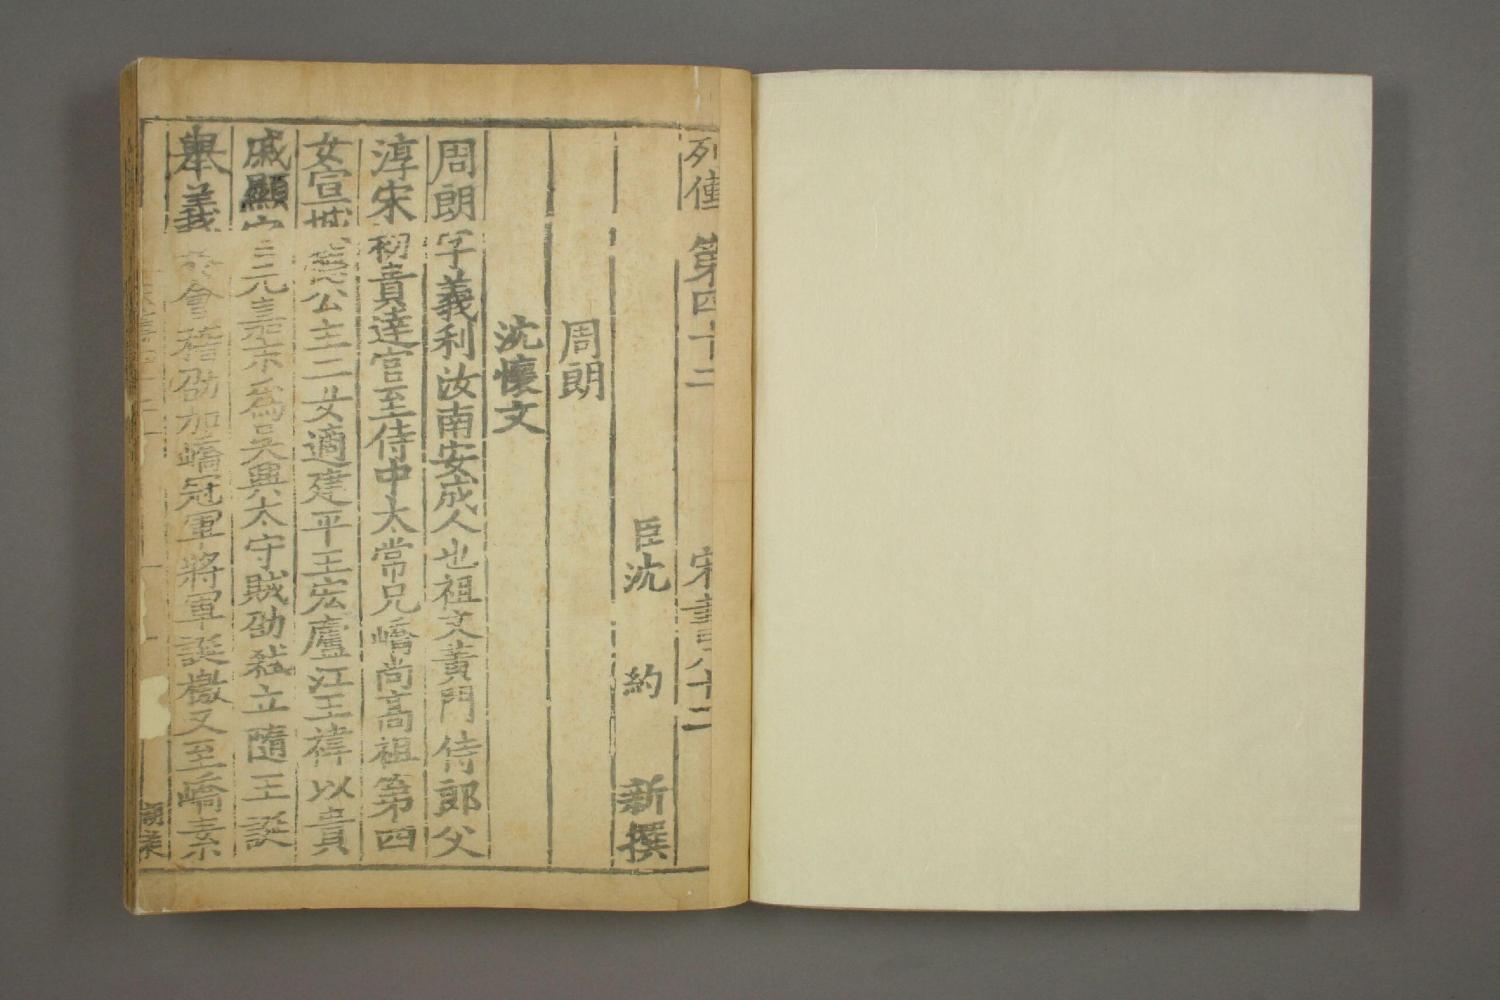 列傳第四十二 宋書八十二
臣沈約新撰
周朗
沈懷文
周朗字義利汝南安成人也祖文黃門侍郎父
淳宋初貴達官至侍中太常兄嶠尚高祖第四
女宣城德公主二女適建平王宏廬江王褘以貴
戚顯官元嘉末爲吳興太守賊劭弒立隨王誕
舉義於會稽劭加嶠冠軍將軍誕檄又至嶠素